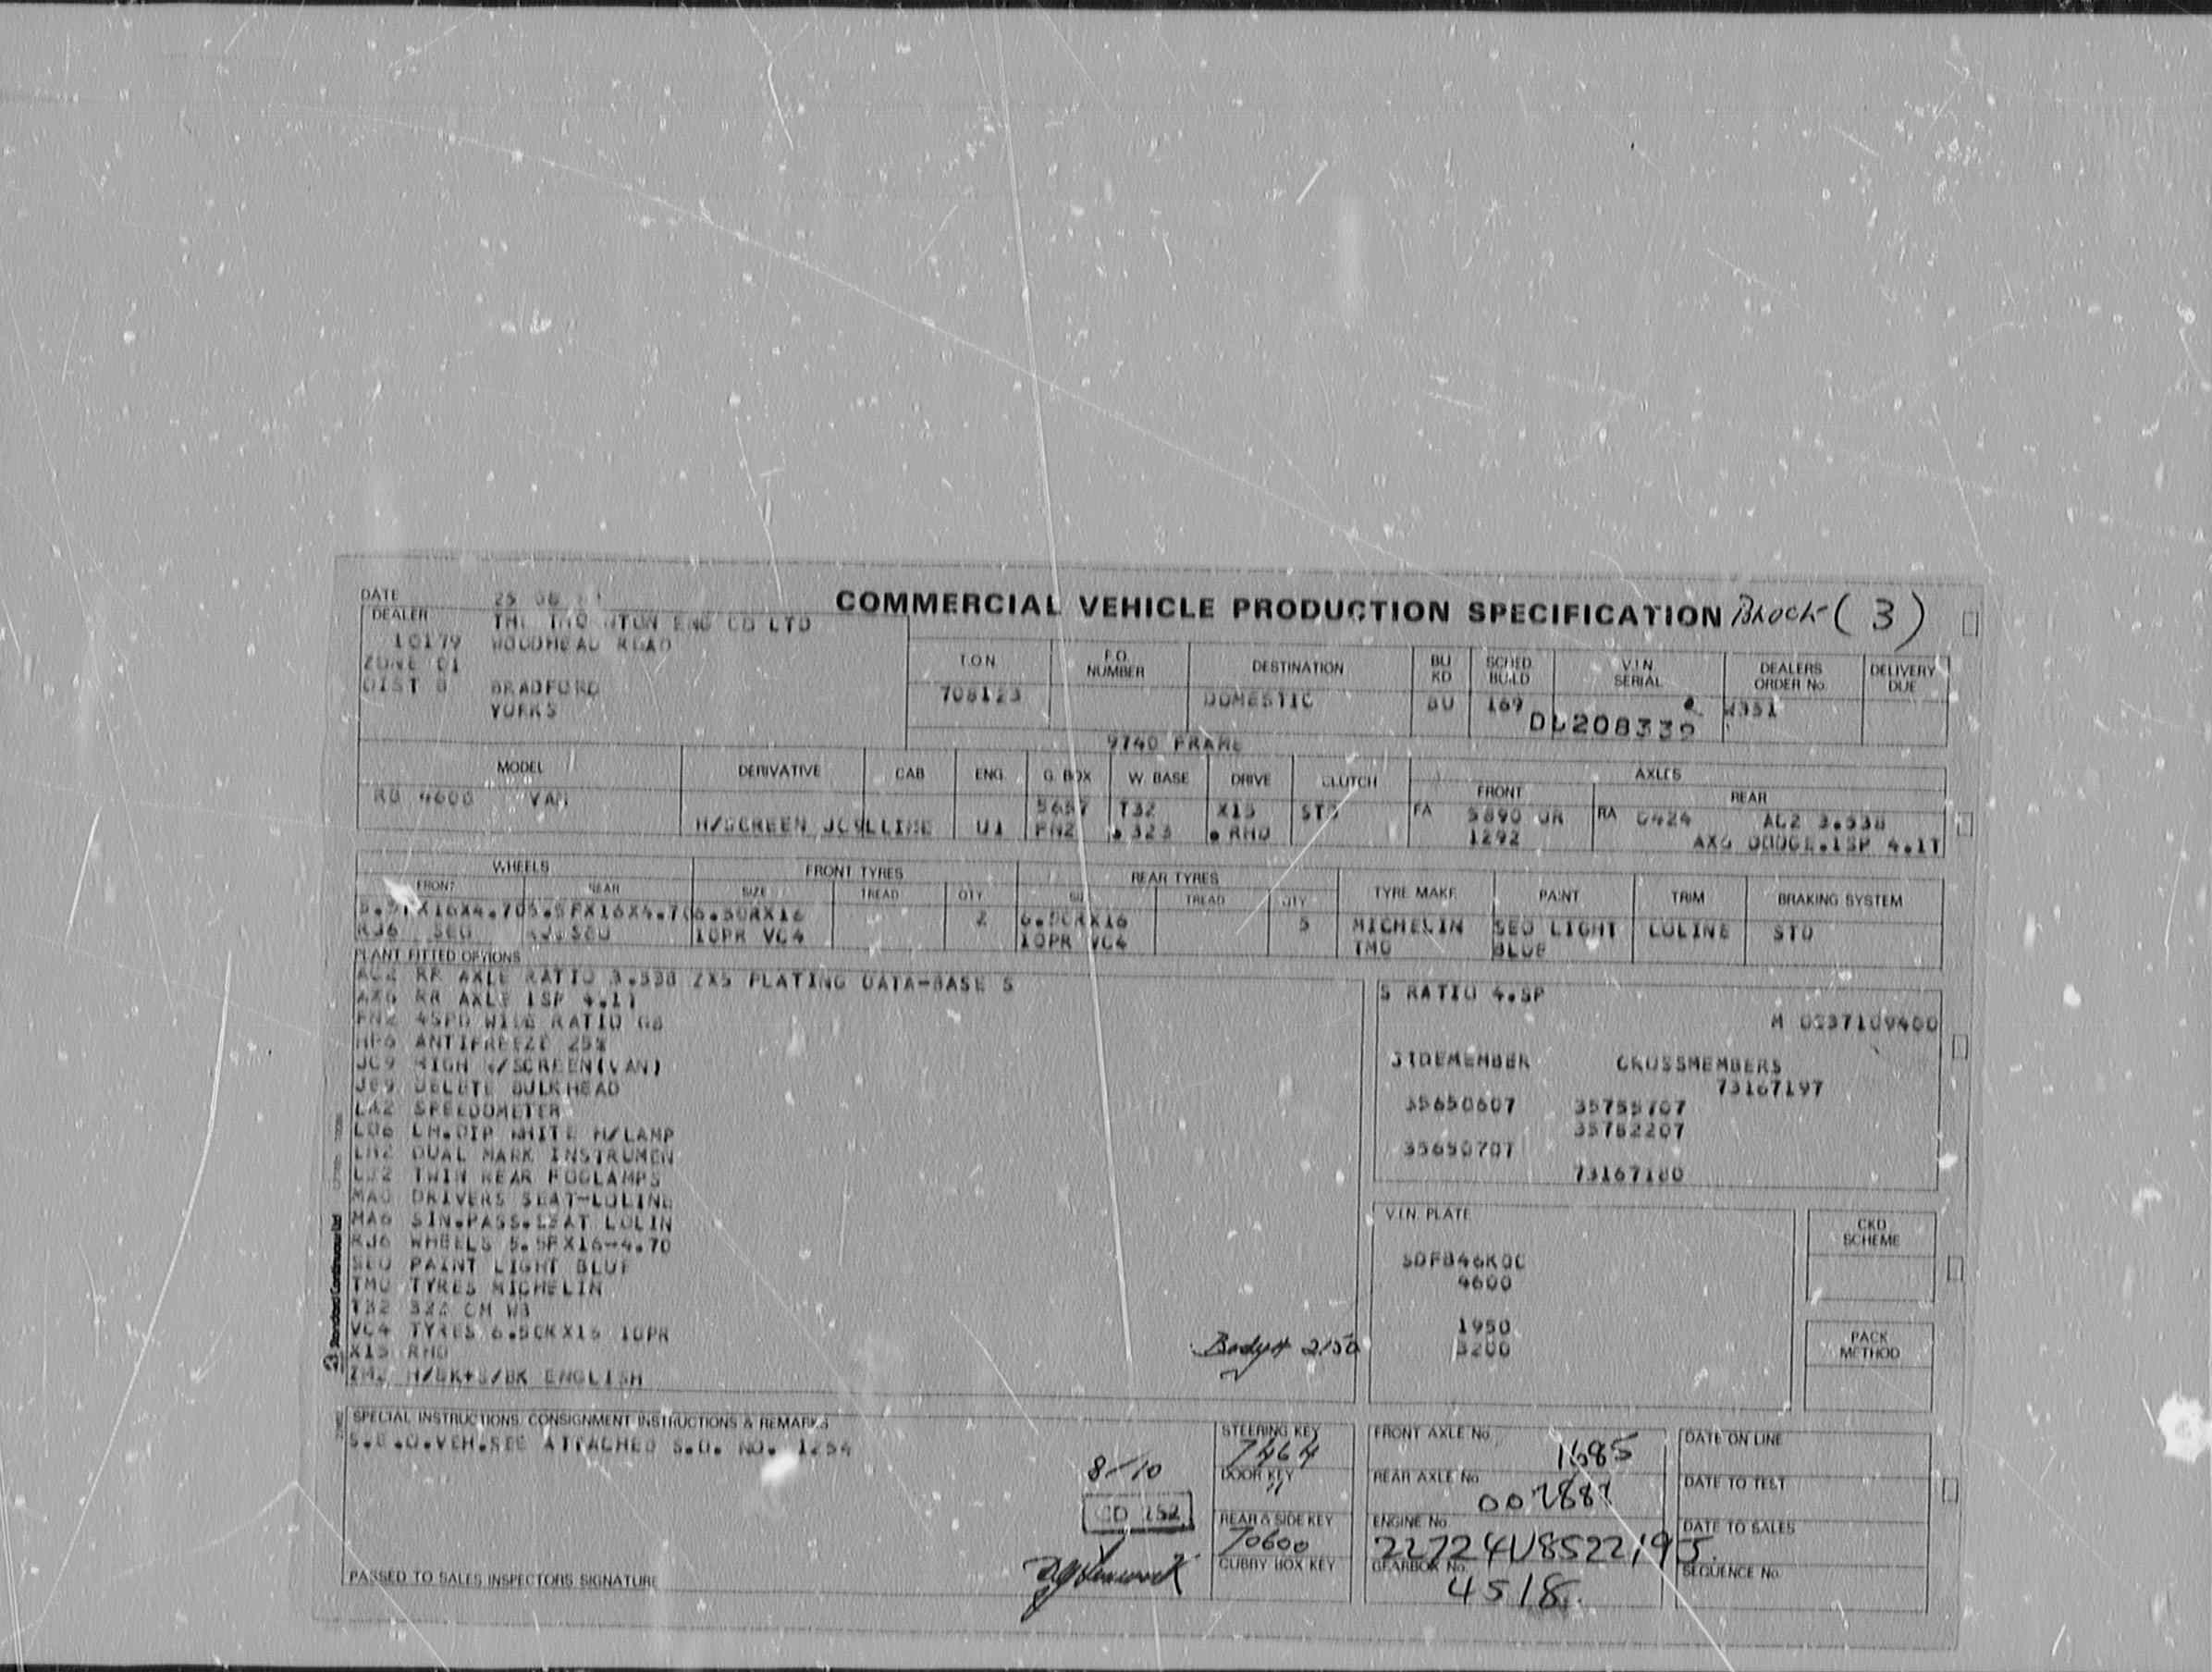 COMMERCIAL VEHICLE PRODUCTION SPECIFICATION (3)
DATE 25 08
DEALER ENG CO LTD
10179 WOODHEAD ROAD
ZONE 01
DIST 8 BRADFORD
YORKS
T.O.N F.O. NUMBER DESTINATION BU KD SCHED BUILD V.I.N. SERIAL DEALERS ORDER No. DELIVERY DUE
708123 DOMESTIC BU 169 DL208339 W351
9740 FRAME
MODEL DERIVATIVE CAB ENG. G. BOX W. BASE DRIVE CLUTCH AXLES
FRONT REAR
RB 4600 VAN 5657 T32 X15 STD FA 5890 OR RA 0424 AC2 3.538
H/SCREEN JC9 LLINE U1 FN2 .323 .RHD 1292 AX6 DODGE.1SP 4.1T
WHEELS FRONT TYRES REAR TYRES
FRONT REAR SIZE TREAD QTY TREAD QTY TYRE MAKE PAINT TRIM BRAKING SYSTEM
5.5FX16X4.70 5.5FX16X4.70 6.50RX16 2 6.50RX16 5 MICHELIN SEO LIGHT LOLINE STD
RJ6 SEO RJ6 SEO 10PR VC4 10PR VC4 TMO BLUE
PLANT FITTED OPTIONS
AC2 RR AXLE RATIO 3.538 ZX5 PLATING DATA-BASE S
AX6 RR AXLE 1SP 4.1T
FN2 4SPD WIDE RATIO GB
HP6 ANTIFREEZE 25%
JC9 HIGH W/SCREEN(VAN)
JE9 DELETE BULKHEAD
LA2 SPEEDOMETER
LD6 LH.DIP WHITE H/LAMP
DUAL MARK INSTRUMEN
TWIN REAR FOGLAMPS
MAO DRIVERS SEAT-LOLINE
MA6 SIN.PASS.SEAT LOLIN
RJ6 WHEELS 5.5FX16-4.70
SEO PAINT LIGHT BLUE
TMO TYRES MICHELIN
T32 323 CM WB
VC4 TYRES 6.50RX16 10PR
X15 RHD
H/BK+S/BK ENGLISH
Body # 2150
S RATIO 4.SP
M 0337109400
SIDEMEMBER CROSSMEMBERS
73167197
35650607 35755707
35762207
35650707
73167180
V.I.N. PLATE
SDFB46K0C
4600
1950
3200
CKD SCHEME
PACK METHOD
Standard Continuous Ltd
SPECIAL INSTRUCTIONS, CONSIGNMENT INSTRUCTIONS & REMARKS
S.E.O.VEH.SEE ATTACHED S.O. NO. 1254
8-10
CD 152
PASSED TO SALES INSPECTORS SIGNATURE
STEERING KEY
7464
DOOR KEY
"
REAR & SIDE KEY
70600
CUBBY BOX KEY
FRONT AXLE No.
1685
REAR AXLE No.
007887
ENGINE No.
22724U8522195
GEARBOX No.
4518
DATE ON LINE
DATE TO TEST
DATE TO SALES
SEQUENCE No.